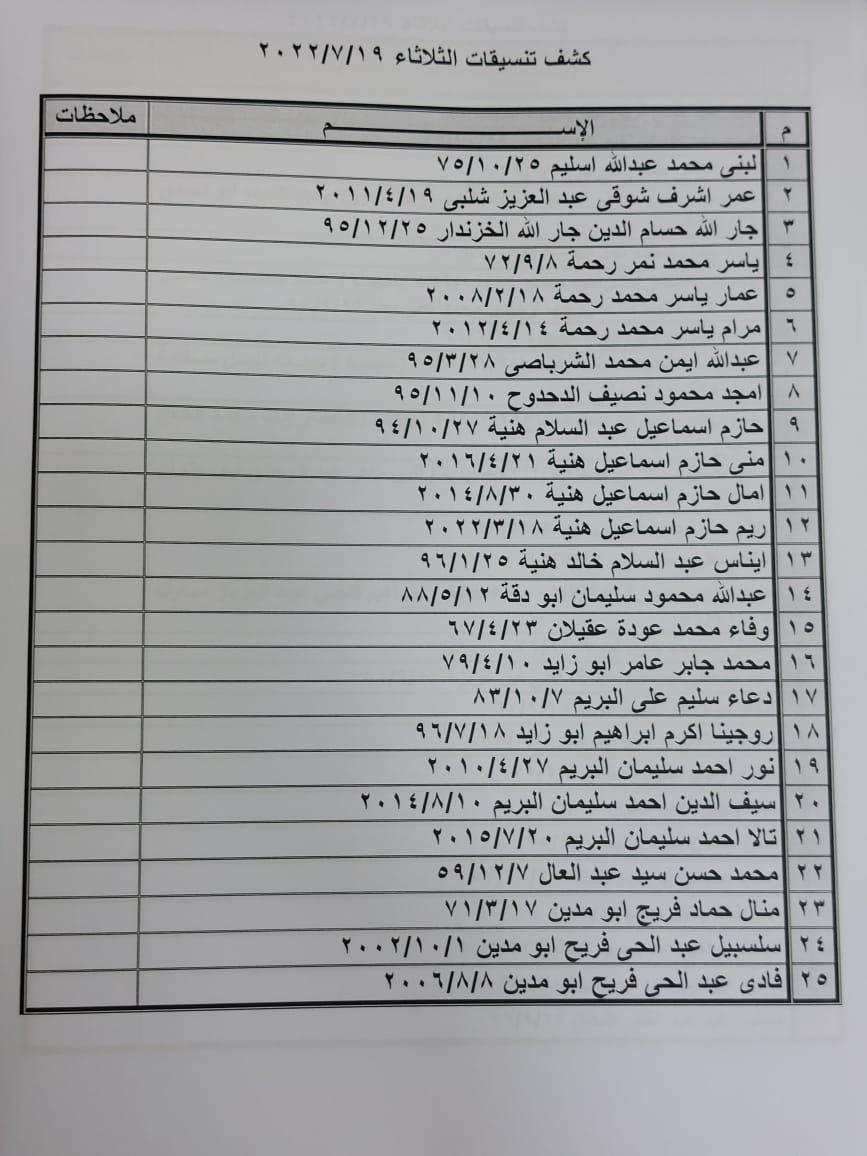 كشف تنسيقات الثلاثاء ٢٠٢٢/٧/١٩
م الإســــم ملاحظات
١ لبنى محمد عبدالله اسليم ٧٥/١٠/٢٥
٢ عمر اشرف شوقى عبد العزيز شلبى ٢٠١١/٤/١٩
٣ جار الله حسام الدين جار الله الخزندار ٩٥/١٢/٢٥
٤ ياسر محمد نمر رحمة ٧٢/٩/٨
٥ عمار ياسر محمد رحمة ٢٠٠٨/٢/١٨
٦ مرام ياسر محمد رحمة ٢٠١٢/٤/١٤
٧ عبدالله ايمن محمد الشرباصى ٩٥/٣/٢٨
٨ امجد محمود نصيف الدحدوح ٩٥/١١/١٠
٩ حازم اسماعيل عبد السلام هنية ٩٤/١٠/٢٧
١٠ منى حازم اسماعيل هنية ٢٠١٦/٤/٢١
١١ امال حازم اسماعيل هنية ٢٠١٤/٨/٣٠
١٢ ريم حازم اسماعيل هنية ٢٠٢٢/٣/١٨
١٣ ايناس عبد السلام خالد هنية ٩٦/١/٢٥
١٤ عبدالله محمود سليمان ابو دقة ٨٨/٥/١٢
١٥ وفاء محمد عودة عقيلان ٦٧/٤/٢٣
١٦ محمد جابر عامر ابو زايد ٧٩/٤/١٠
١٧ دعاء سليم على البريم ٨٣/١٠/٧
١٨ روجينا اكرم ابراهيم ابو زايد ٩٦/٧/١٨
١٩ نور احمد سليمان البريم ٢٠١٠/٤/٢٧
٢٠ سيف الدين احمد سليمان البريم ٢٠١٤/٨/١٠
٢١ تالا احمد سليمان البريم ٢٠١٥/٧/٢٠
٢٢ محمد حسن سيد عبد العال ٥٩/١٢/٧
٢٣ منال حماد فريج ابو مدين ٧١/٣/١٧
٢٤ سلسبيل عبد الحى فريح ابو مدين ٢٠٠٢/١٠/١
٢٥ فادى عبد الحى فريح ابو مدين ٢٠٠٦/٨/٨